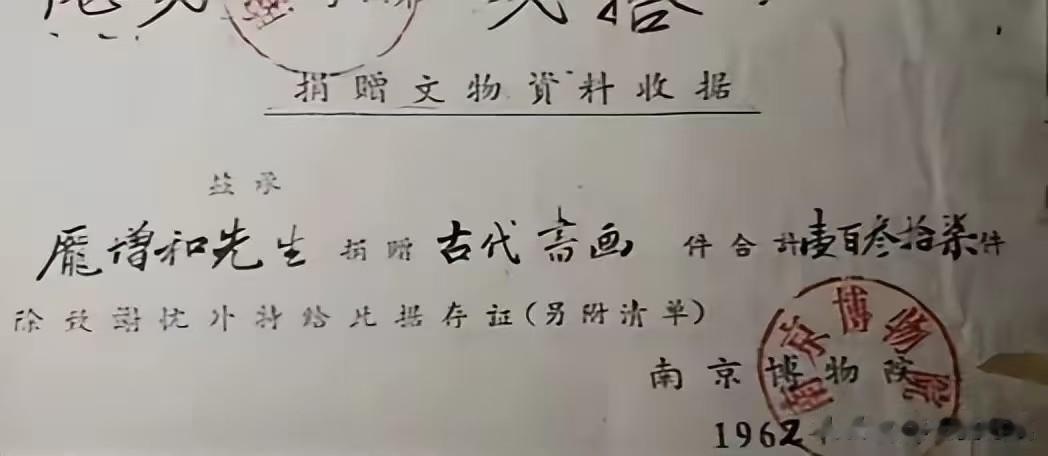 捐赠文物資料收据
兹承
龐增和先生捐赠古代書画 件合計壹百叁拾柒件
除致謝忱外持给此据存証(另附清单)
南京博物院
南京博物院
1962